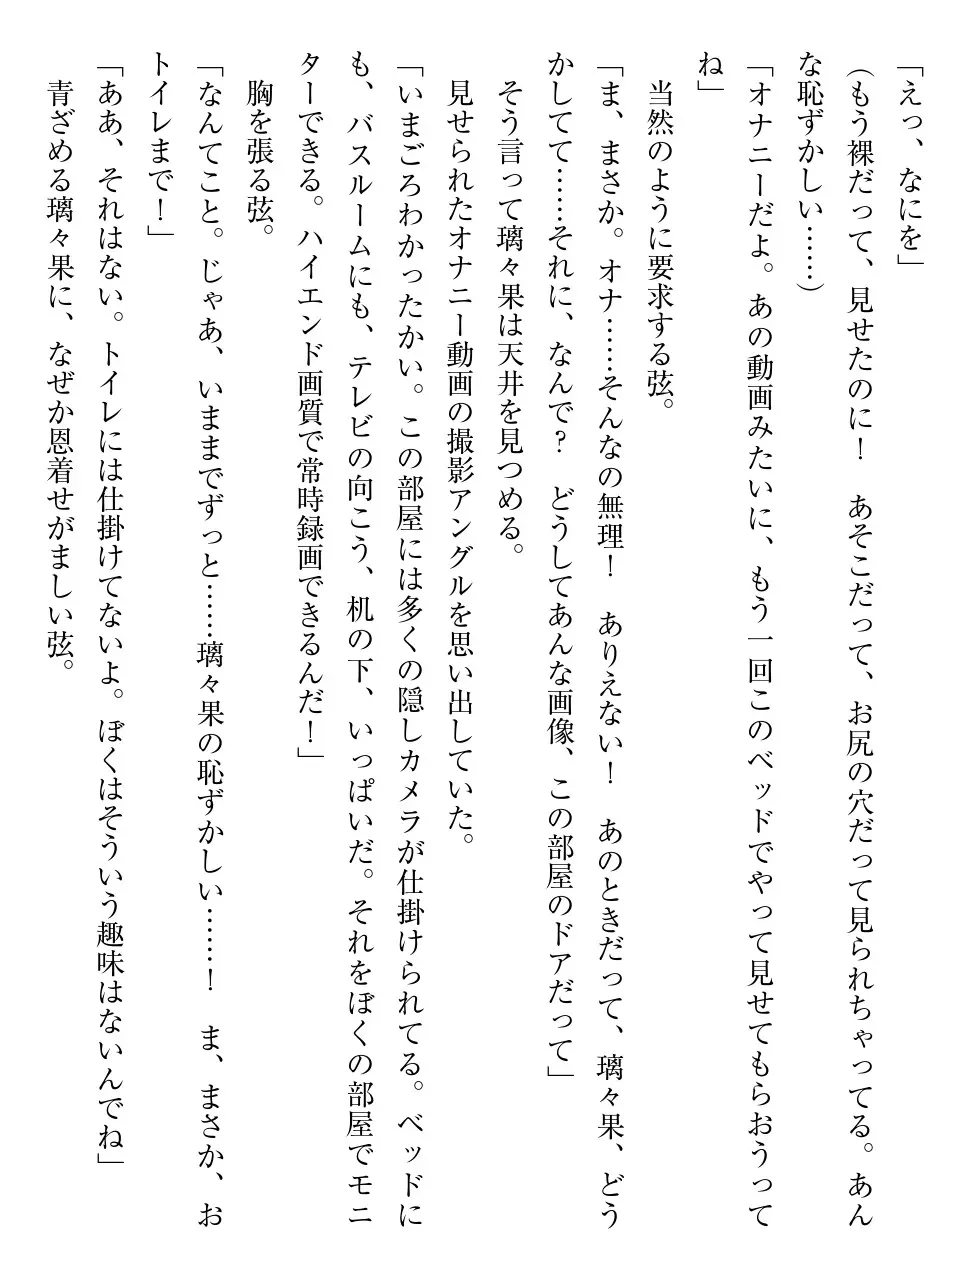 「えっ、なにを」
（もう裸だって、見せたのに！　あそこだって、お尻の穴だって見られちゃってる。あん
な恥ずかしい……）
「オナニーだよ。あの動画みたいに、もう一回このベッドでやって見せてもらおうって
ね」
　当然のように要求する弦。
「ま、まさか。オナ……そんなの無理！　ありえない！　あのときだって、璃々果、どう
かしてて……それに、なんで？　どうしてあんな画像、この部屋のドアだって」
　そう言って璃々果は天井を見つめる。
　見せられたオナニー動画の撮影アングルを思い出していた。
「いまごろわかったかい。この部屋には多くの隠しカメラが仕掛けられてる。ベッドに
も、バスルームにも、テレビの向こう、机の下、いっぱいだ。それをぼくの部屋でモニ
ターできる。ハイエンド画質で常時録画できるんだ！」
　胸を張る弦。
「なんてこと。じゃあ、いままでずっと……璃々果の恥ずかしい……！　ま、まさか、お
トイレまで！」
「ああ、それはない。トイレには仕掛けてないよ。ぼくはそういう趣味はないんでね」
　青ざめる璃々果に、なぜか恩着せがましい弦。